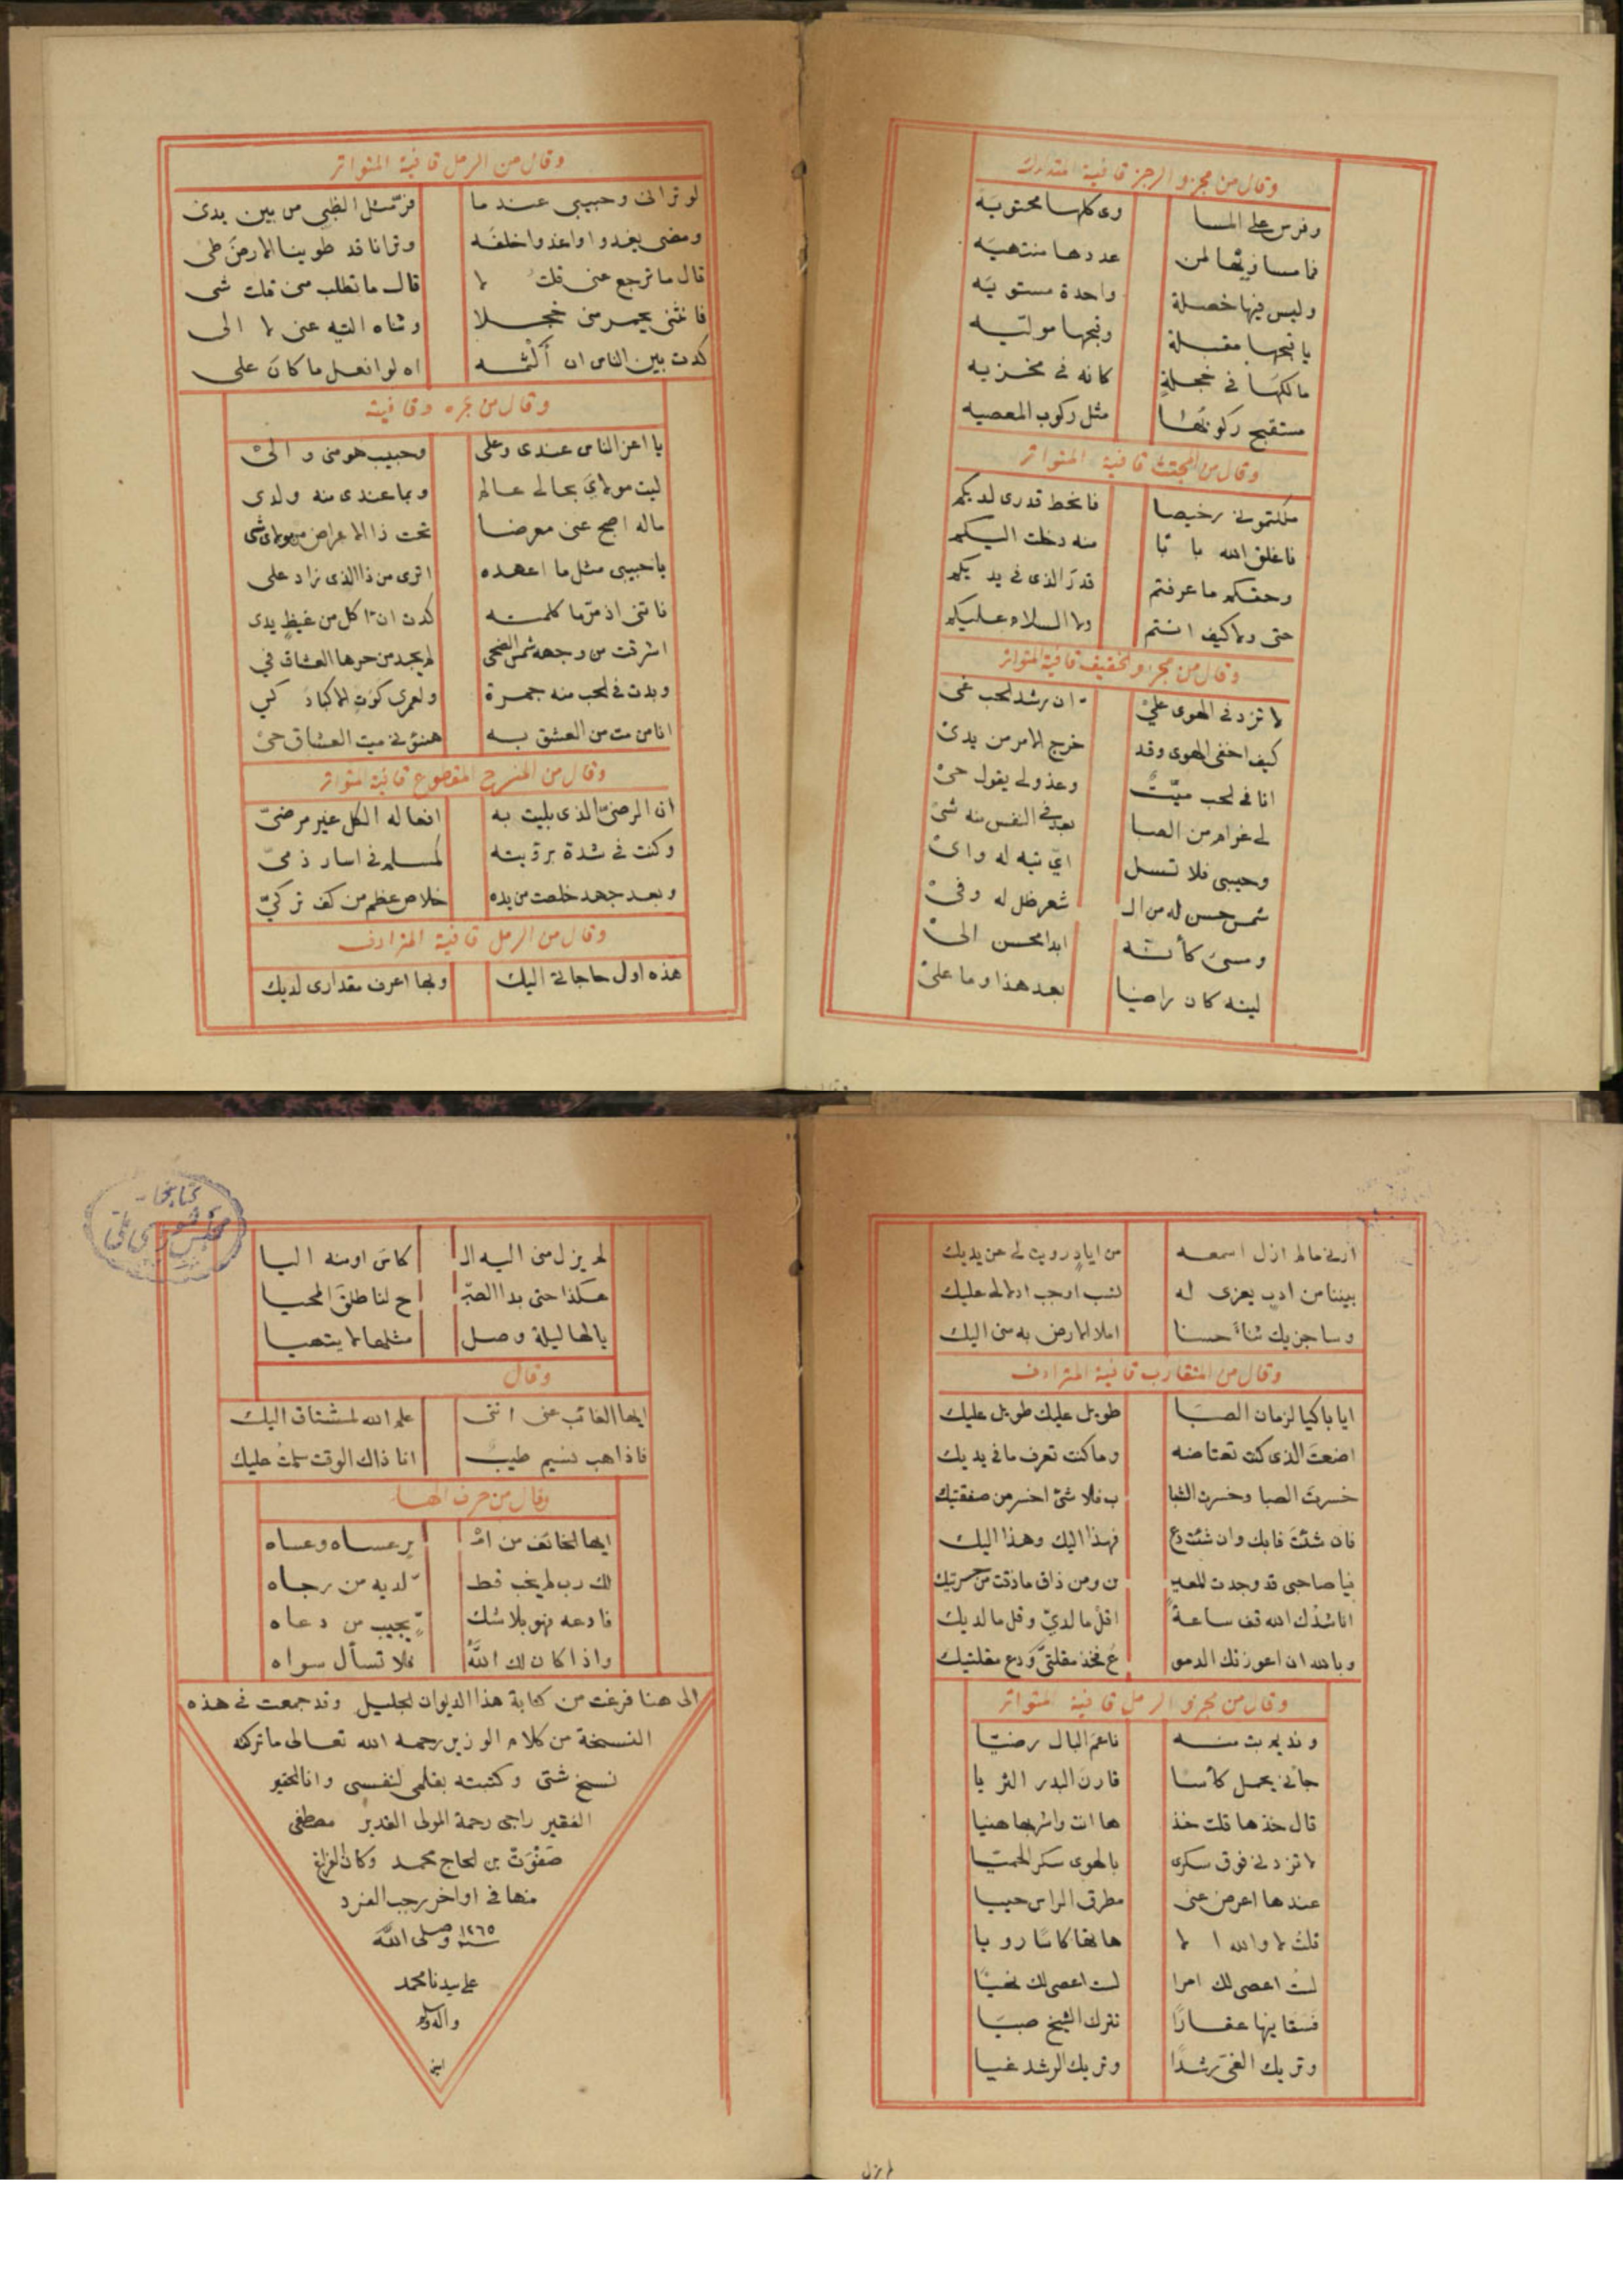 وقال من مجزو الرجز قافية المتدارك
وفرس على المسا وى كلها محتويه
فما مساويها لمن عددها منتهيه
وليس فيها خصلة واحدة مستويه
يا قبحها مقبلة وقبحها موليه
مالكها فى خجلة كانه فى مخزيه
مستقبح ركوبها مثل ركوب المعصيه
وقال من المجتث قافية المتواتر
ملكتمونى رخيصا فانحط قدرى لديكم
فاغلق الله بابا منه دخلت اليكم
وحقكم ما عرفتم قدر الذى فى يديكم
حتى ولا كيف انتم ولا السلام عليكم
وقال من مجزو الخفيف قافية المتواتر
لا تزد فى الهوى علىّ ان رشد الحب غى
كيف اخفى الهوى وقد خرج الامر من يدى
انا فى الحب ميّت وعذولى يقول حى
لى غرام من الصبا بعد فى النفس منه شى
وحبيبى فلا تسل اىّ تيه له واى
شمس حسن له من الـ شعر ظل له وفى
ومسئ كأنه ابدا محسن الى
ليته كان راضيا بعد هذا وما على
وقال من الرمل قافية المتواتر
لو ترانى وحبيبى عندما فرّ مثل الظبى من بين يدى
ومضى يعدو واعدو خلفه وترانا قد طوينا الارض طى
قال ما ترجع عنى قلت لا قال ما تطلب منى قلت شى
فانثنى يحمر منى خجلا وثناه التيه عنى لا الى
كدت بين الناس ان ألثمه اه لو افعل ما كان على
وقال من بحره وقافيته
يا اعز الناس عندى وعلى وحبيب هو منى والى
ليت مولاى بحالى عالم وبما عندى منه ولدى
ماله اصبح عنى معرضا تحت ذا الاعراض من مولاى شى
يا حبيبى مثل ما اعهده اترى من ذا الذى زاد على
فاتنى اذ مرّ ما كلمته كدت ان اكل من غيظ يدى
اشرقت من وجهه شمس الضحى لم يجد من حرها العشاق فى
وبدت فى الحب منه جمرة ولعمرى كوت الاكباد كى
انا من مت من العشق به هنئونى ميت العشاق حى
وقال من المنسرح المقطوع قافية المتواتر
ان الرضىّ الذى بليت به افعاله الكل غير مرضىّ
وكنت فى شدة برؤيته كمسلم فى اسار ذمىّ
وبعد جهد خلصت من يده خلاص عظم من كف تركىّ
وقال من الرمل قافية المترادف
هذه اول حاجاتى اليك وبها اعرف مقدارى لديك
أرنى ما لم ازل اسمعه من اياد رويت لى عن يديك
بيننا من ادب يعزى له نسب اوجب ادلالى عليك
وساجزيك ثناءً حسنا املا الارض به منى اليك
وقال من المتقارب قافية المترادف
ايا باكيا لزمان الصبا طويل عليك طويل عليك
اضعت الذى كنت تعتاضه وما كنت تعرف ما فى يديك
خسرت الصبا وخسرت الشبا ب فلا شئ اخسر من صفقتيك
فان شئت فابك وان شئت دع فهذا اليك وهذا اليك
فيا صاحبى قد وجدت المعيـ ن ومن ذاق ما ذقت من حسرتيك
اناشدك الله قف ساعة اقل ما لدىّ وقل ما لديك
وبالله ان اعوزتك الدمو ع فخذ مقلتىّ ودع مقلتيك
وقال من مجزو الرمل قافية المتواتر
ونديم بت منه ناعم البال رضيّا
جائنى يحمل كأسا قارن البدر الثريا
قال خذها قلت خذ ها انت واشربها هنيا
لا تزدنى فوق سكرى بالهوى سكر الحميّا
عندها اعرض عنى مطرق الراس حييا
قلت لا والله الا هاتها كاسا رويا
لست اعصى لك امرا لست اعصى لك نهيّا
فسقانيها عقارًا تترك الشيخ صبيّا
وتريك الغى رشدًا وتريك الرشد غيا
لم يزل
كتابخانه
مجلس شوراى ملى
لم يزل منى اليه الـ كاس او منه اليا
هكذا حتى بدا الصبـ ح لنا طلق المحيا
يالها ليلة وصل مثلها لا يتهيا
وقال
ايها الغائب عنى اننى علم الله لمشتاق اليك
فاذا هب نسيم طيب انا ذاك الوقت سلمت عليك
وقال من حرف الهاء
ايها الخائف من امـ ر عساه وعساه
لك رب لم يخب قط لديه من رجاه
فادعه فهو بلا شك يجيب من دعاه
واذا كان لك الله فلا تسأل سواه
الى هنا فرغت من كتابة هذا الديوان الجليل وقد جمعت فى هذه
النسخة من كلام الوزير رحمه الله تعالى ما تركته
نسخ شتى وكتبته بقلمى لنفسى وانا الحقير
الفقير راجى رحمة المولى القدير مصطفى
صفوت بن الحاج محمد وكان الفراغ
منها فى اواخر رجب الفرد
سنه ١٢٦٥ وصلى الله
على سيدنا محمد
واله وسلم